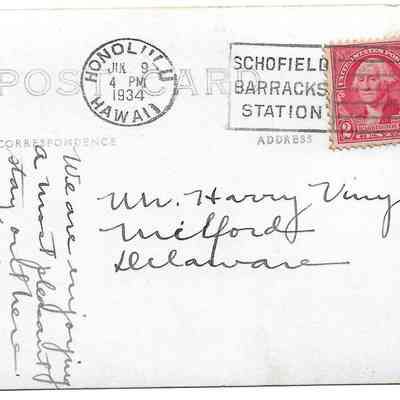 POST CARD
HONOLULU
JUN 9
4 PM
1934
HAWAII
SCHOFIELD
BARRACKS
STATION
UNITED STATES POSTAGE
2
CORRESPONDENCE
ADDRESS
We are enjoying
a most pleasant
stay out here.
Mr. Harry Viny
Milford
Delaware